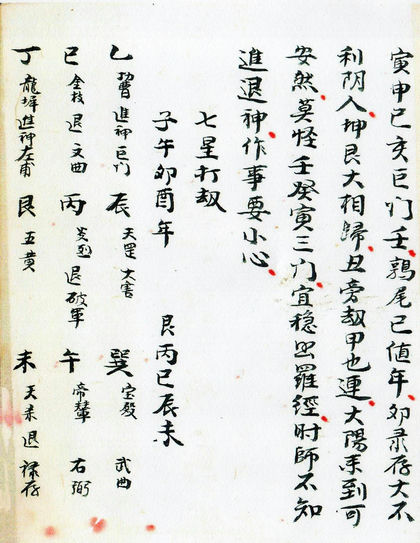 寅甲巳亥巨门壬鶉尾已值年卯录存大不
利阴入坤艮大相歸丑旁劫甲也連大陽来到可
安然莫怪壬癸寅三门宜稳出羅經时師不知
進退神作事要小心
七星打劫
子午卯酉年　艮丙巳辰未
乙 進神巨门 辰 天罡大害 巽 宝殿 武曲
巳 金枝 退 文曲 丙 炎烈 退破軍 午 帝輦 右弼
丁 龍墀進神左甫 艮 五黄 未 天乘 退 禄存